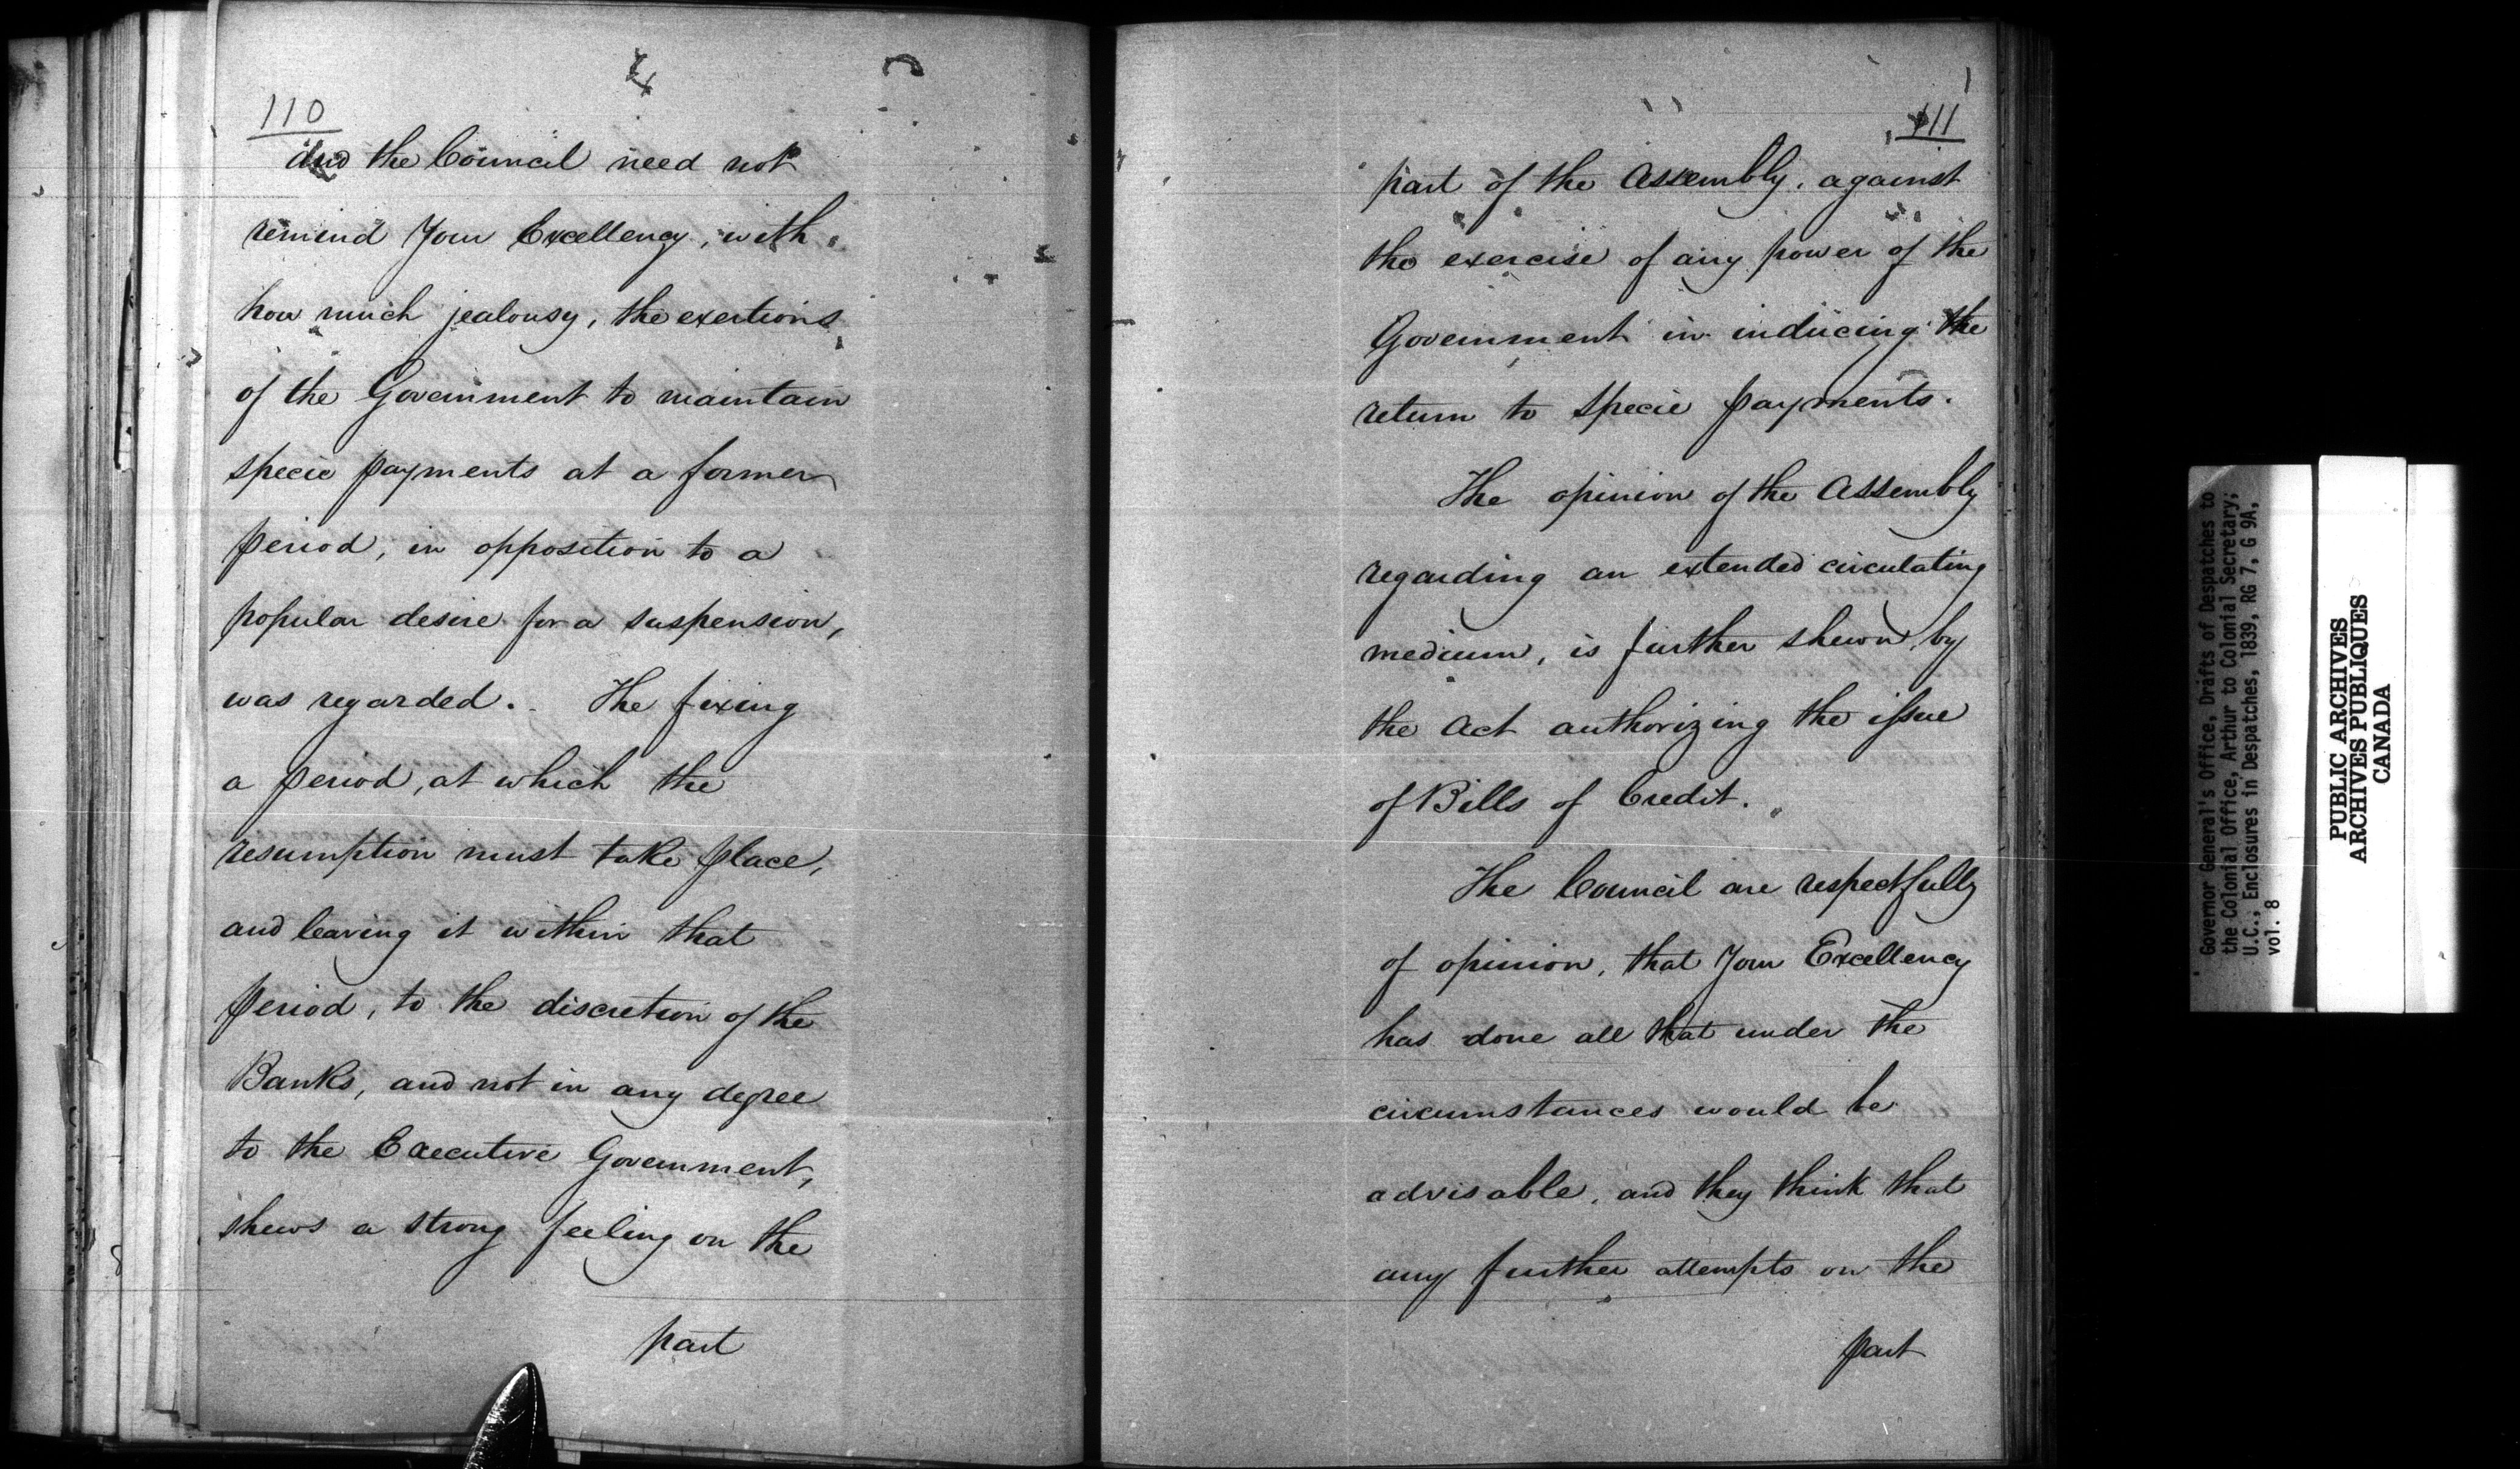 110
and the Council need not
remind Your Excellency, with
how much jealousy, the exertions
of the Government to maintain
specie payments at a former
period, in opposition to a
popular desire for a suspension,
was regarded. The fixing
a period, at which the
resumption must take place,
and leaving it within that
period, to the discretion of the
Banks, and not in any degree
to the Executive Government,
shews a strong feeling on the
part
111
part of the Assembly, against
the exercise of any power of the
Government in inducing the
return to specie payments.
The opinion of the Assembly
regarding an extended circulating
medium, is further shewn by
the Act authorizing the issue
of Bills of Credit.
The Council are respectfully
of opinion, that Your Excellency
has done all that under the
circumstances would be
advisable, and they think that
any further attempts on the
part
Governor General's Office, Drafts of Despatches to
the Colonial Office, Arthur to Colonial Secretary;
U.C., Enclosures in Despatches, 1839, RG 7, G 9A,
vol. 8
PUBLIC ARCHIVES
ARCHIVES PUBLIQUES
CANADA